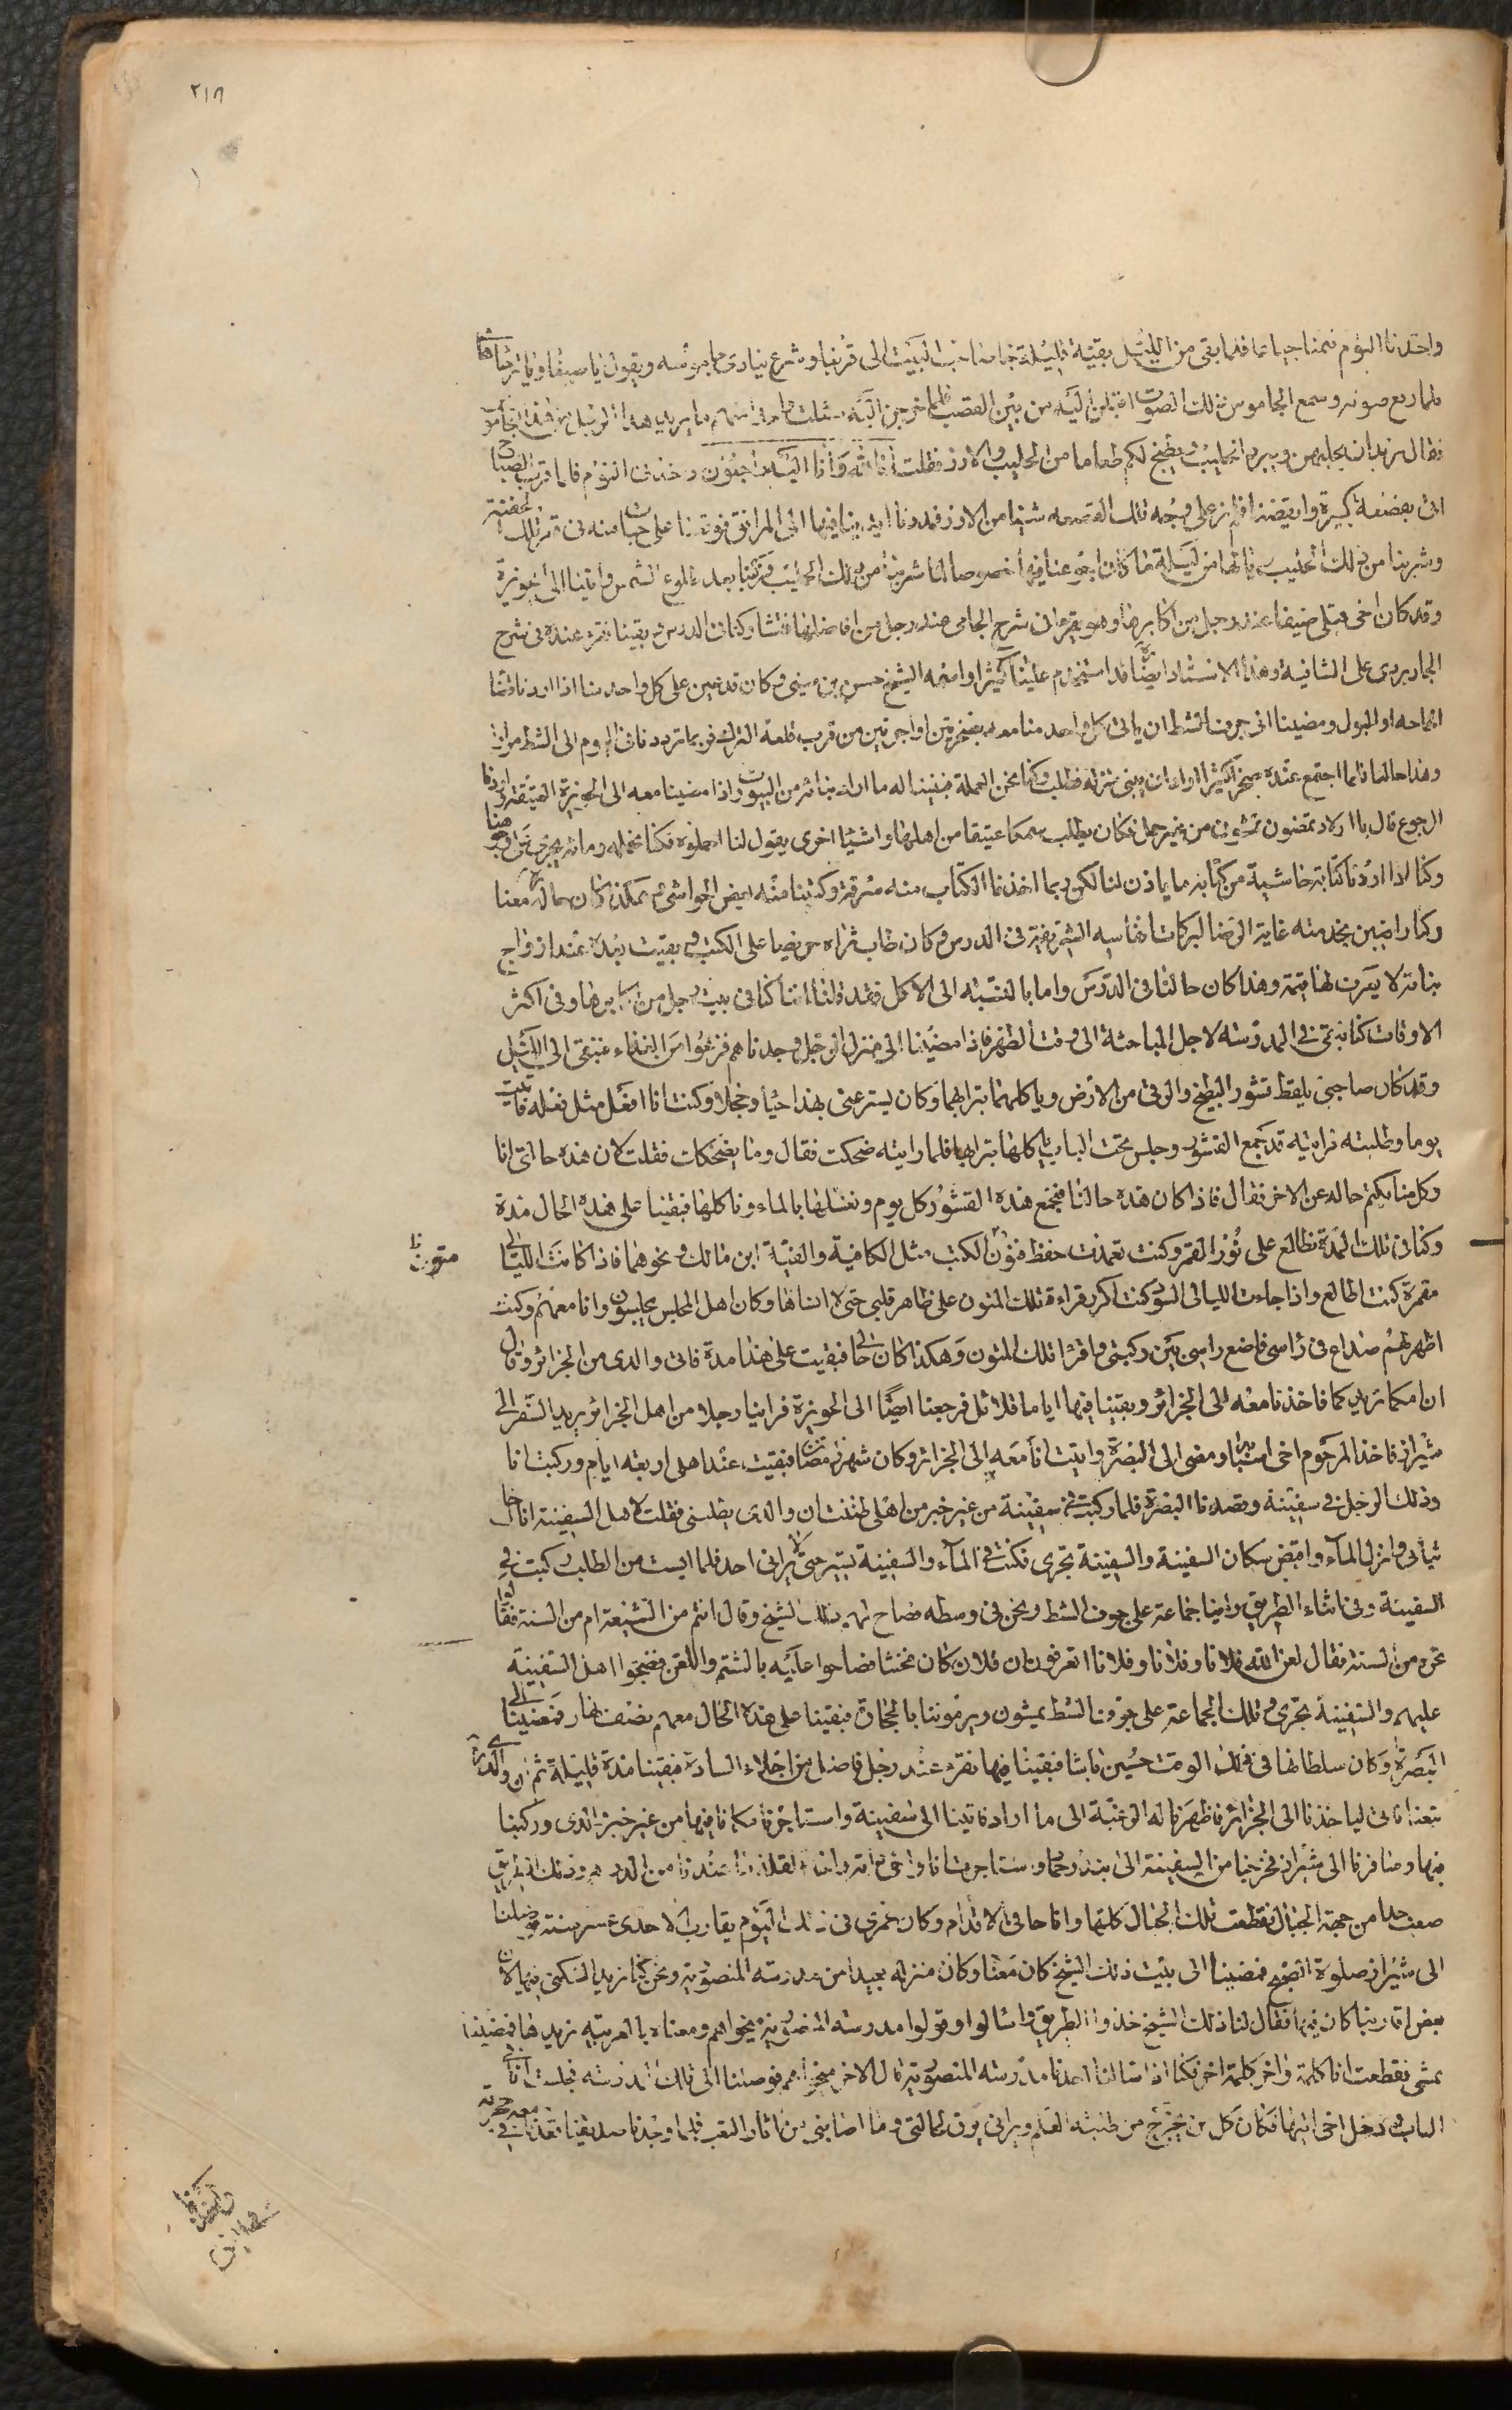 ٢١٨
واخذنا النوم فنمنا جياعا فلما بقى من الليل بقية قليلة جاء صاحب البيت الى قربنا وشرع ينادى جاموسه ويقول يا صبغا ويا قرحا ها
فلما رفع صوته وسمع الجاموس ذلك الصوت اقبلن اليه من بين القصب فلما خرجن اليه سئلت واحدا منهم ما يريد هذا الرجل من هذا الجاموس
فقال يريد ان يحلبهن ويبرد الحليب ويطبخ لكم طعاما من الحليب والارز فقلت انا لله وانا اليه راجعون واخذنى النوم فلما قرب الصباح
اتى بقصعة كبيرة وايقضنا فلم نر على وجه تلك القصعة شيئا من الارز فمددنا ايدينا فيها الى المرافق فوقعنا على حبات منه فى قعر تلك الجفنة
وشربنا من ذلك الحليب فيا لها من ليلة ما كان اجوعنا فيها خصوصا لما شربنا من ذلك الحليب وركبنا بعد طلوع الشمس واتينا الى الحويزة
وقد كان اخى قبلى ضيفا عند رجل من اكابرها وهو يقرء فى شرح الجامى عند رجل من افاضلها فتشاركنا فى الدرس وبقينا نقرء عنده فى شرح
الجاربردى على الشافية وهذا الاستاد ايضا قد استخدم علينا كثيرا واسمه الشيخ حسن بن سبتى وكان قد عين على كل واحد منا اذا اردنا قضاء
الحاجه او البول ومضينا الى جرف الشط ان ياتى كل واحد منا معه بصخرتين او اجرتين من قرب قلعة الترك فربما ترددنا فى اليوم الى الشط مرارا
وهذا حالنا فلما اجتمع عنده صخر كثير اراد ان يبنى منزله فطلب وكنا نحن العملة فبنينا له ما اراد بنائه من البيوت واذا مضينا معه الى الحويزة العتيقة واردنا
الرجوع قال يا اولاد تمضون تمشون من غير حمل فكان يطلب سمكا عتيقا من اهلها واشياء اخرى يقول لنا احملوه فكنا نحمله ومائه يجرى على وجوهنا
وكنا اذا اردنا كتابة حاشية من كتابه ما ياذن لنا لكن ربما اخذنا الكتاب منه سرقة وكتبنا منه بعض الحواشى هكذا كان حاله معنا
وكنا راضين بخدمته غاية الرضا لبركات انفاسه الشريفة فى الدرس وكان طاب ثراه حريصا على الكتب وبقيت بعده عند ازواج
بناته لا يعرف لها قيمة وهذا كان حالنا فى الدرس واما بالنسبة الى الاكل فقد قلنا اننا كنا فى بيت رجل من اكابرها وفى اكثر
الاوقات كنا نبقى فى المدرسه لاجل المباحثة الى وقت الظهر فاذا مضينا الى منزل الرجل وجدناهم فزعوا من الغذاء فنبقى الى الليل
وقد كان صاحبى يلقط قشور البطيخ والرقى من الارض وياكلهما بترابهما وكان يستر عنى بهذا حياء وخجلا وكنت انا افعل مثل فعله فاتيت
يوما وطلبته فرايته قد جمع القشور وجلس تحت الباب ياكلها بترابها فلما رايته ضحكت فقال وما يضحكك فقلت لان هذه حالتى انا
وكل منا يكتم حاله عن الاخر فقال فاذا كان هذه حالنا فنجمع هذه القشور كل يوم ونغسلها بالماء وناكلها فبقينا على هذه الحال مدة
وكنا فى تلك المدة نطالع على نور القمر وكنت تعمدت حفظ متون الكتب مثل الكافية والفية ابن مالك ونحوهما فاذا كانت الليالى
متون
مقمرة كنت اطالع واذا جاءت الليالى السود كنت اكرر قراءة تلك المتون على ظاهر قلبى حتى لا انساها وكان اهل المجلس يجلسون وانا معهم وكنت
اظهر لهم صداع فى راسى فاضع راسى بين ركبتى واقرأ تلك المتون وهكذا كان حالى فبقيت على هذا مدة فاتى والدى من الجزائر وقال
ان امكما تريدكما فاخذنا معه الى الجزائر وبقينا فيها اياما قلائل فرجعنا ايضا الى الحويزة فراينا رجلا من اهل الجزائر يريد السفر الى
شيراز فاخذ المرحوم اخى اسبابه ومضى الى البصرة واتيت انا معه الى الجزائر وكان شهر رمضان فبقيت عند اهلى اربعة ايام وركبت انا
وذلك الرجل فى سفينة وقصدنا البصرة فلما ركبت فى سفينة من غير خبر من اهلى ظننت ان والدى يطلبنى فقلت لاهل السفينة انا اخلع
ثيابى وانزل الماء واقبض سكان السفينة والسفينة تجرى فكنت فى الماء والسفينة تسير حتى لا يرانى احد فلما ايست من الطلب ركبت فى
السفينة وفى اثناء الطريق راينا جماعة على جرف الشط ونحن فى وسطه فصاح لهم ذلك الشيخ وقال انتم من الشيعة ام من السنة فقالوا
نحن من السنة فقال لعن الله فلانا وفلانا وفلانا اتعرفون ان فلان كان مخنثا فصاحوا عليه بالشتم واللعن فضجوا اهل السفينة
عليهم والسفينة تجرى وتلك الجماعة على جرف الشط يمشون ويرموننا بالحجارة فبقينا على هذه الحال معهم نصف نهار فمضينا الى
البصرة وكان سلطانها فى ذلك الوقت حسين باشا فبقينا فيها نقرء عند رجل فاضل من اجلاء السادة فبقينا مدة قليلة ثم ان والدى
تبعنا فاتى لياخذنا الى الجزائر فاظهرنا له الرغبة الى ما اراد فاتينا الى سفينة واستاجرنا مكانا فيها من غير خبر والدى وركبنا
فيها وسافرنا الى شيراز فخرجنا من السفينة الى بندر حماد واستاجرت انا واخى لقلة ما عندنا من الدراهم وذلك الطريق
صعب جدا من جهة الجبال فقطعت تلك الجبال كلها وانا حافى الاقدام وكان عمرى فى ذلك اليوم يقارب الاحدى عشر سنة فوصلنا
الى شيراز صلوة الصبح فمضينا الى بيت ذلك الشيخ كان معنا وكان منزله بعيدا من مدرسة المنصورية ونحن كنا نريد السكنى فيها لان
بعض اقاربنا كان فيها فقال لنا ذلك الشيخ خذوا الطريق واسالوا وقولوا مدرسه المنصورية ميخواهم ومعناه بالعربيه نريدها فمضينا
نمشى فقطعت انا كلمة واخى كلمة اخرى فكنا اذا سالنا احدنا مدرسه المنصورية قال الاخر ميخواهم فوصلنا الى تلك المدرسه فجلست انا فى
الباب ودخل اخى اليها فكان كل من يخرج من طلبة العلم ويرانى يرق لحالتى وما اصابنى من اثار التعب فلما وجدنا صديقنا قعدنا معه فى حجرته